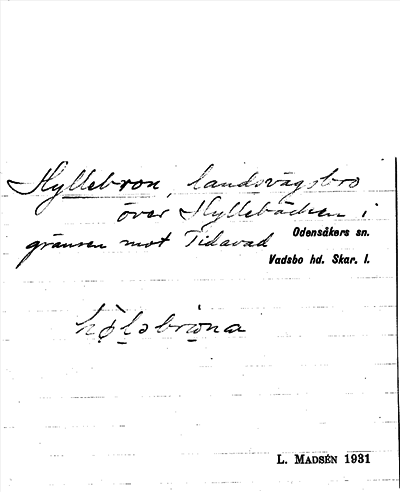 Hyllebron, landsvägsbro
över Hyllebäcken i
gränsen mot Tidavad
Odensåkers sn.
Vadsbo hd. Skar. l.
L. MADSÉN 1931